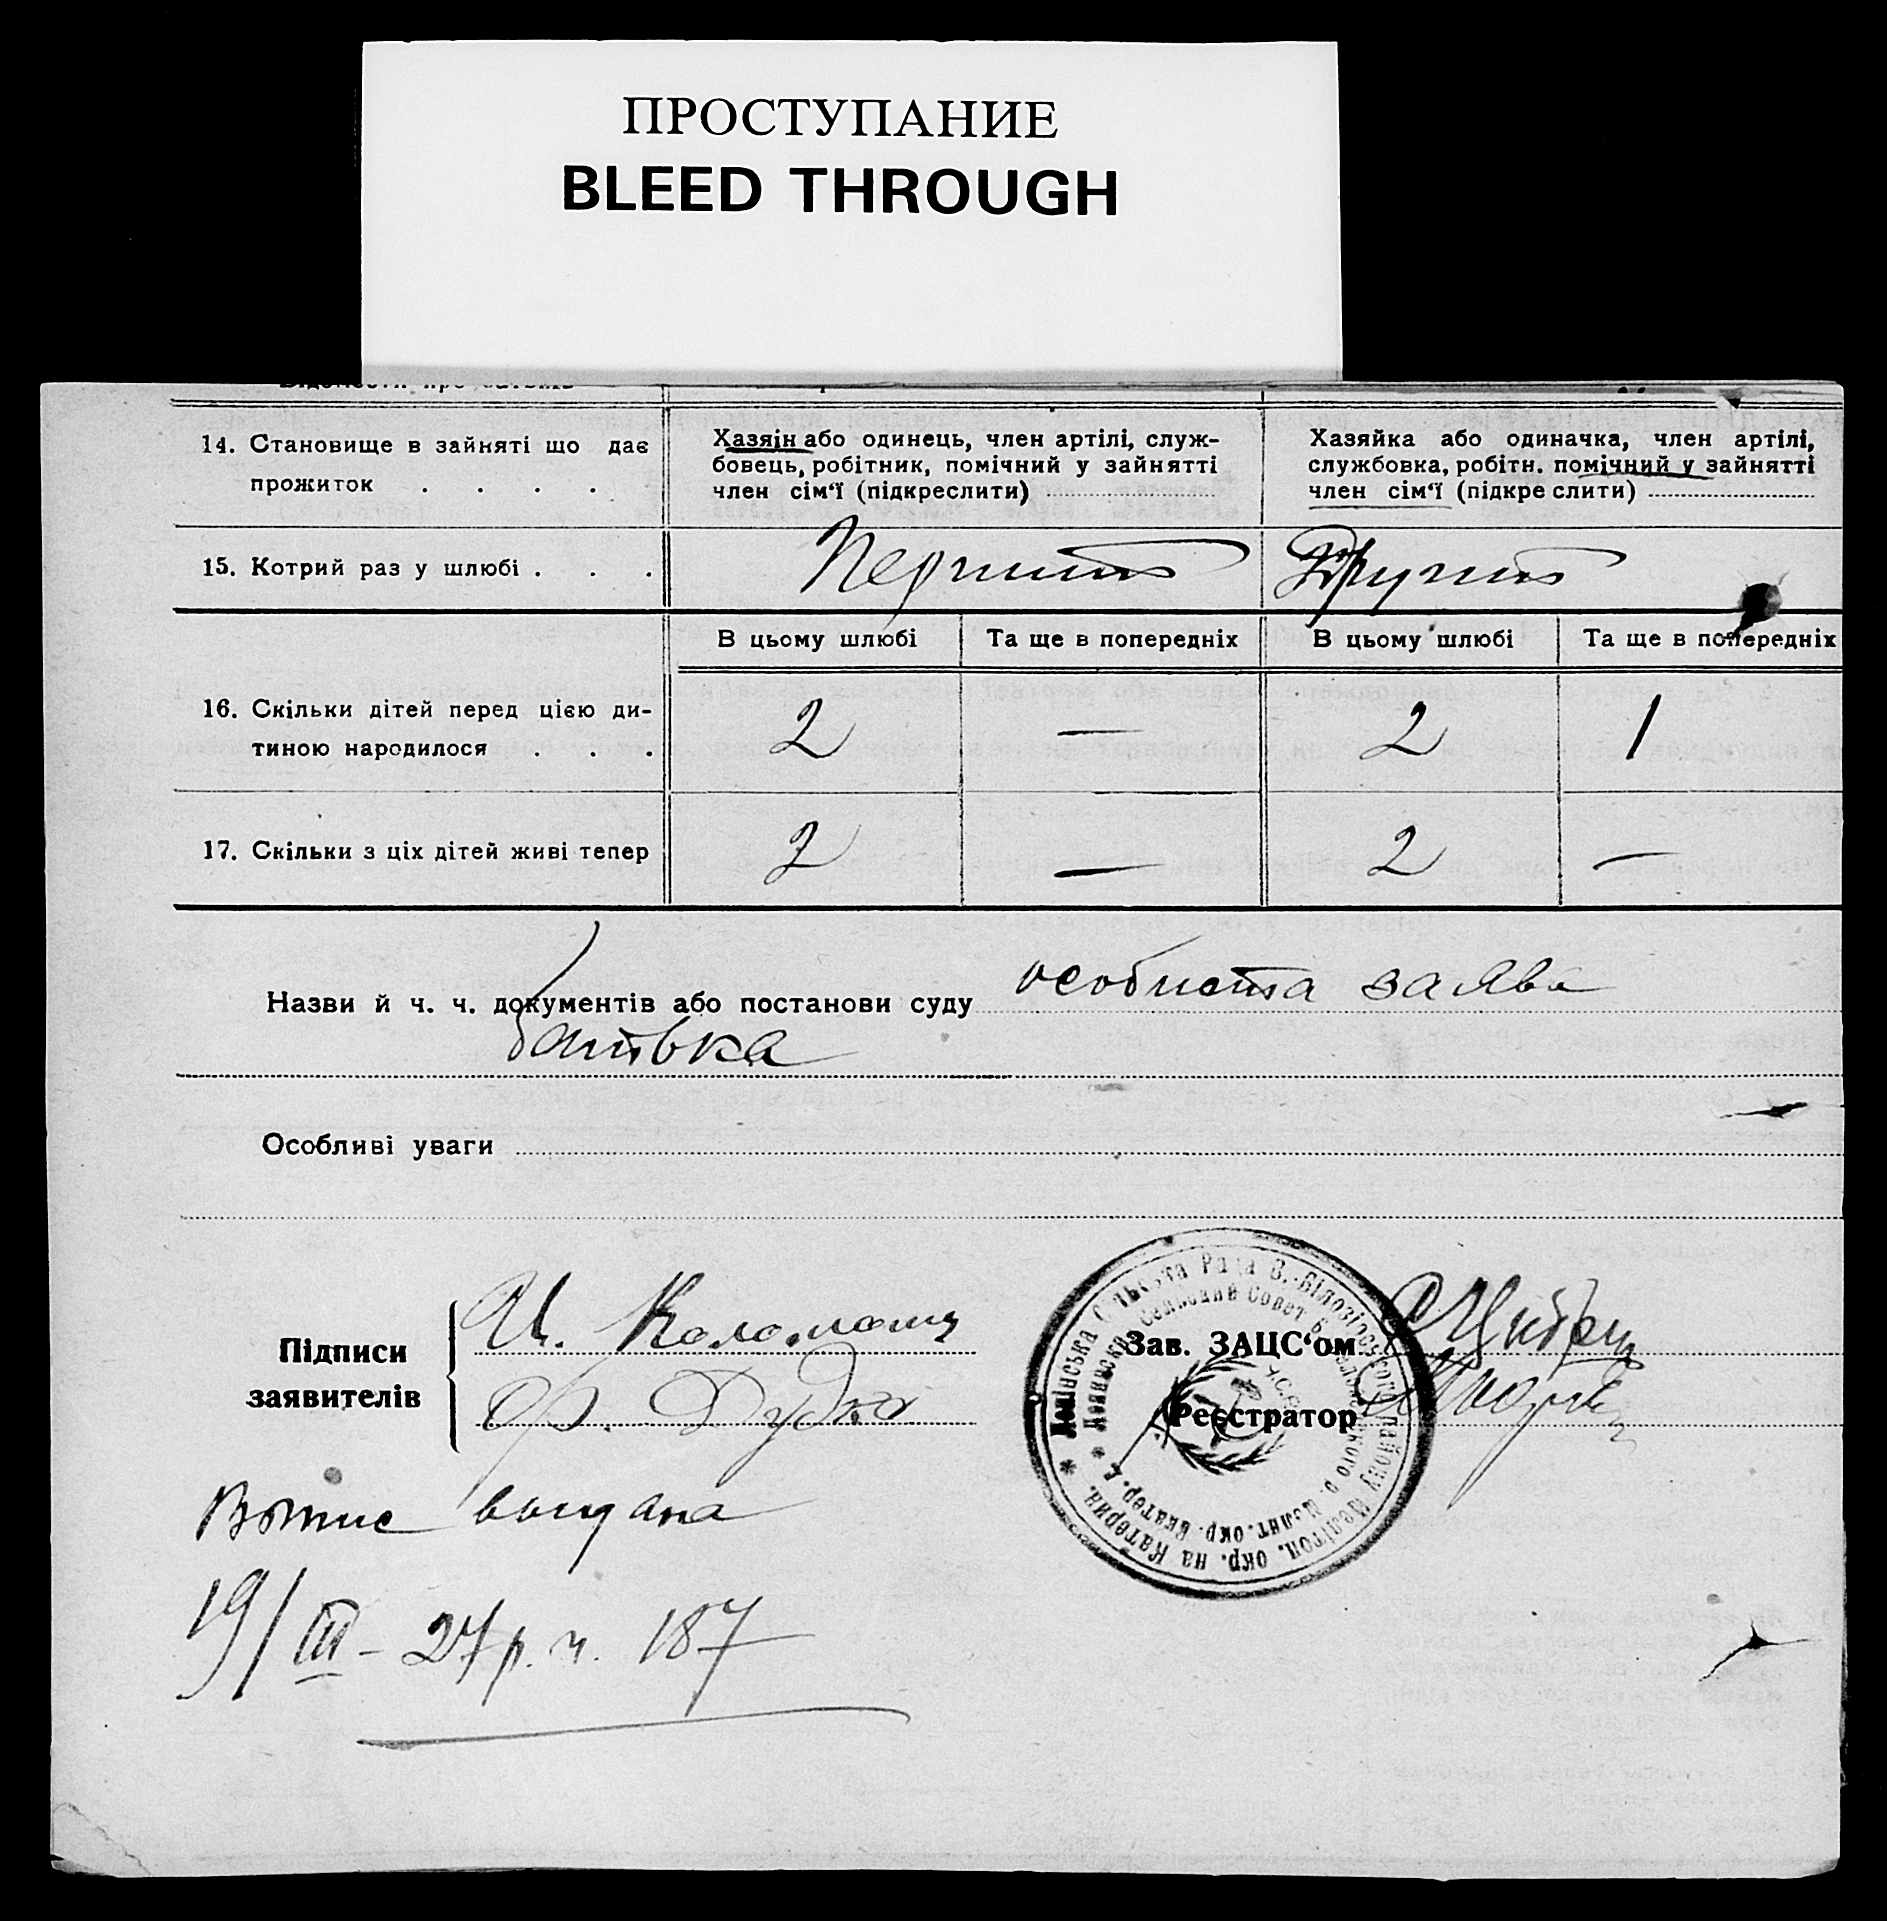 ПРОСТУПАНИЕ
BLEED THROUGH
14. Становище в зайняті що дає
прожиток . . . .
Хазяін або одинець, член артілі, служ-
бовець, робітник, помічний у зайнятті
член сім‘ї (підкреслити)
Хазяйка або одиначка, член артілі,
службовка, робітн. помічний у зайнятті
член сім‘ї (підкре слити)
15. Котрий раз у шлюбі . . .
Перший
Другий
В цьому шлюбі
Та ще в попередніх
В цьому шлюбі
Та ще в попередніх
16. Скільки дітей перед цією ди-
тиною народилося . . .
2
—
2
1
17. Скільки з ціх дітей живі тепер
2
—
2
—
Назви й ч. ч. документів або постанови суду особиста заява
батька
Особливі уваги
Підписи
заявителів
И. Коломоец
Ор. Дудка
Зав. ЗАЦС‘ом
Реєстратор
Випис видана
19/III - 27 р. ч. 187